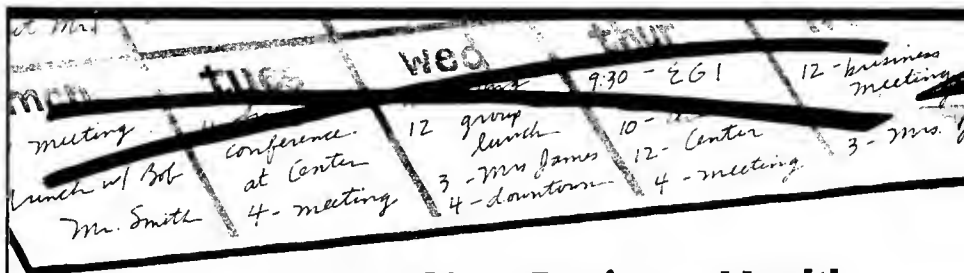 et Mrs
mon tues wed thur
meeting
lunch w/ Bob
Mr. Smith
conference
at Center
4 - meeting
12 group
lunch
3 - Mrs James
4 - downtown
9:30 - EGI
10 -
12 - Center
4 - meeting
12 - business
meeting
3 - Mrs.